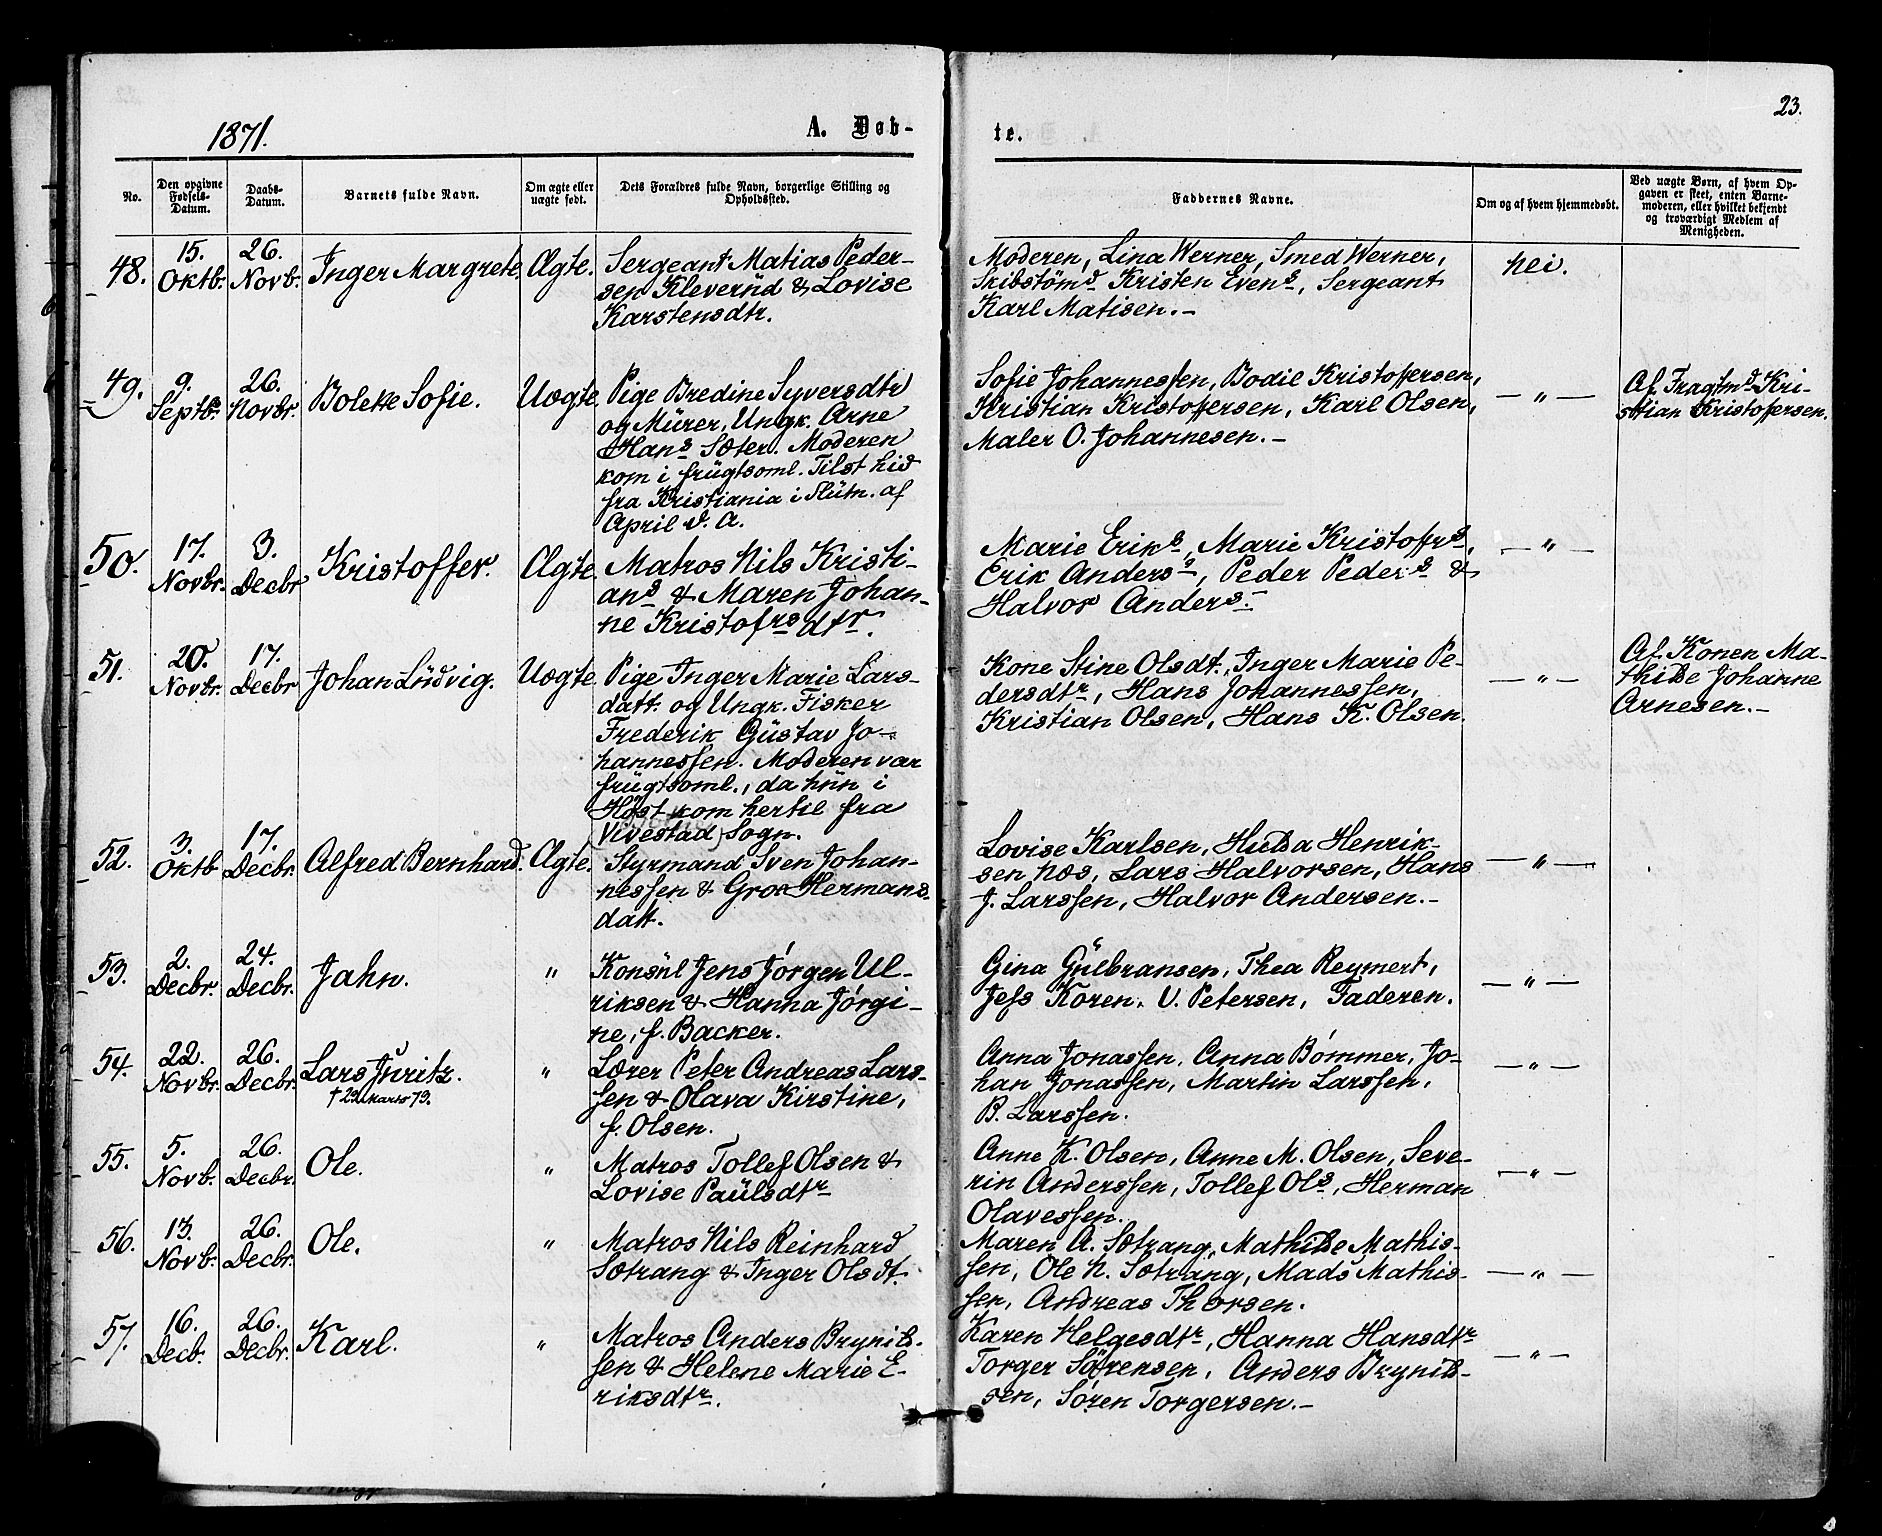 23.
1871.
A. Døb-
te.
No.
Den opgivne
Fødsels-
Datum.
Daabs-
Datum.
Barnets fulde Navn.
Om ægte eller
uægte født.
Dets Forældres fulde Navn, borgerlige Stilling og
Opholdssted.
Faddernes Navne.
Om og af hvem hjemmedøbt.
Ved uægte Børn, af hvem Op-
gaven er skeet, enten Barne-
moderen, eller hvilket bekjendt
og troværdigt Medlem af
Menigheden.
48.
15.
Oktb.
26.
Novb.
Inger Margrete.
Ægte.
Sergeant Matias Peder-
sen Kleverüd & Lovise
Karstensdtr.
Moderen, Lina Werner, Smed Werner,
Skibstømd Kristen Evens, Sergeant
Karl Matisen.-
nei.
49.
9.
Septb.
26.
Novbr.
Bolette Sofie.
Uægte.
Pige Bredine Syversdtr
og Mürer, Ungk. Arne
Hans Sæter. Moderen
kom i frügtsoml. Tilst hid
fra Kristiania i Slütn. af
April d. A.
Sofie Johannessen, Bodil Kristoffersen,
Kristian Kristoffersen, Karl Olsen,
Maler O. Johannesen.-
- " -
Af Fragtmd Kri-
stian Kristoffersen.
50.
17.
Novbr.
3.
Decbr
Kristoffer.
Ægte.
Matros Nils Kristi-
ans & Maren Johan-
ne Kristofrsdtr.
Marie Eriks, Marie Kristoffrs,
Erik Anders, Peder Peders &
Halvor Anders.-
- " -
51.
20.
Novbr.
17.
Decbr
Johan Lüdvig.
Uægte.
Pige Inger Marie Lars-
datt. og Ungk. Fisker
Frederik Güstav Jo-
hannessen. Moderen var
frügtsoml., da hün i
Høst kom hertil fra
Vivestad Sogn.
Kone Stine Olsdt., Inger Marie Pe-
dersdtr, Hans Johannessen,
Kristian Olsen, Hans K. Olsen.
- " -
Af Konen Ma-
thilde Johanne
Arnesen.-
52.
3.
Oktb
17.
Decbr.
Alfred Bernhard.
Ægte.
Styrmand Sven Johan-
nessen & Gro Hermans-
datt.
Lovise Karlsen, Hulda Henrik-
sen Næs, Lars Halvorsen, Hans
J. Larssen, Halvor Andersen.-
- " -
53.
2.
Decbr.
24.
Decbr.
Jahn.
"
Konsül Jens Jørgen Ul-
riksen & Hanna Jørgi-
ne, f. Backer.
Gina Gülbransen, Thea Reymert,
Jess Koren, U. Petersen, Faderen.
- " -
54.
22.
Novbr.
26.
Decbr.
Lars Juritz.
† 29 Marts 79.
"
Lærer Peter Andreas Lars-
sen & Olava Kirstine,
f. Olsen.
Anna Jonassen, Anna Bømmer, Jo-
han Jonassen, Martin Larssen,
B. Larssen.
- " -
55.
5.
Novb.
26.
Decbr.
Ole.
"
Matros Tollef Olsen &
Lovise Paülsdtr
Anne K. Olsen, Anne M. Olsen, Seve-
rin Anderssen, Tollef Ols, Herman
Olavessen.
- " -
56.
13.
Novbr.
26.
Decbr.
Ole.
"
Matros Nils Reinhard
Sætrang & Inger Olsdt.
Maren A. Sætrang, Mathilde Mathis-
sen, Ole N. Sætrang, Mads Mathis-
sen, Andreas Thorsen.
- " -
57.
16.
Decb.
26.
Decbr.
Karl.
"
Matros Anders Brynils-
sen & Helene Marie E-
riksdtr.
Karen Helgesdtr, Hanna Hansdtr
Torger Sörensen, Anders Brynils-
sen, Søren Torgersen.-
- " -